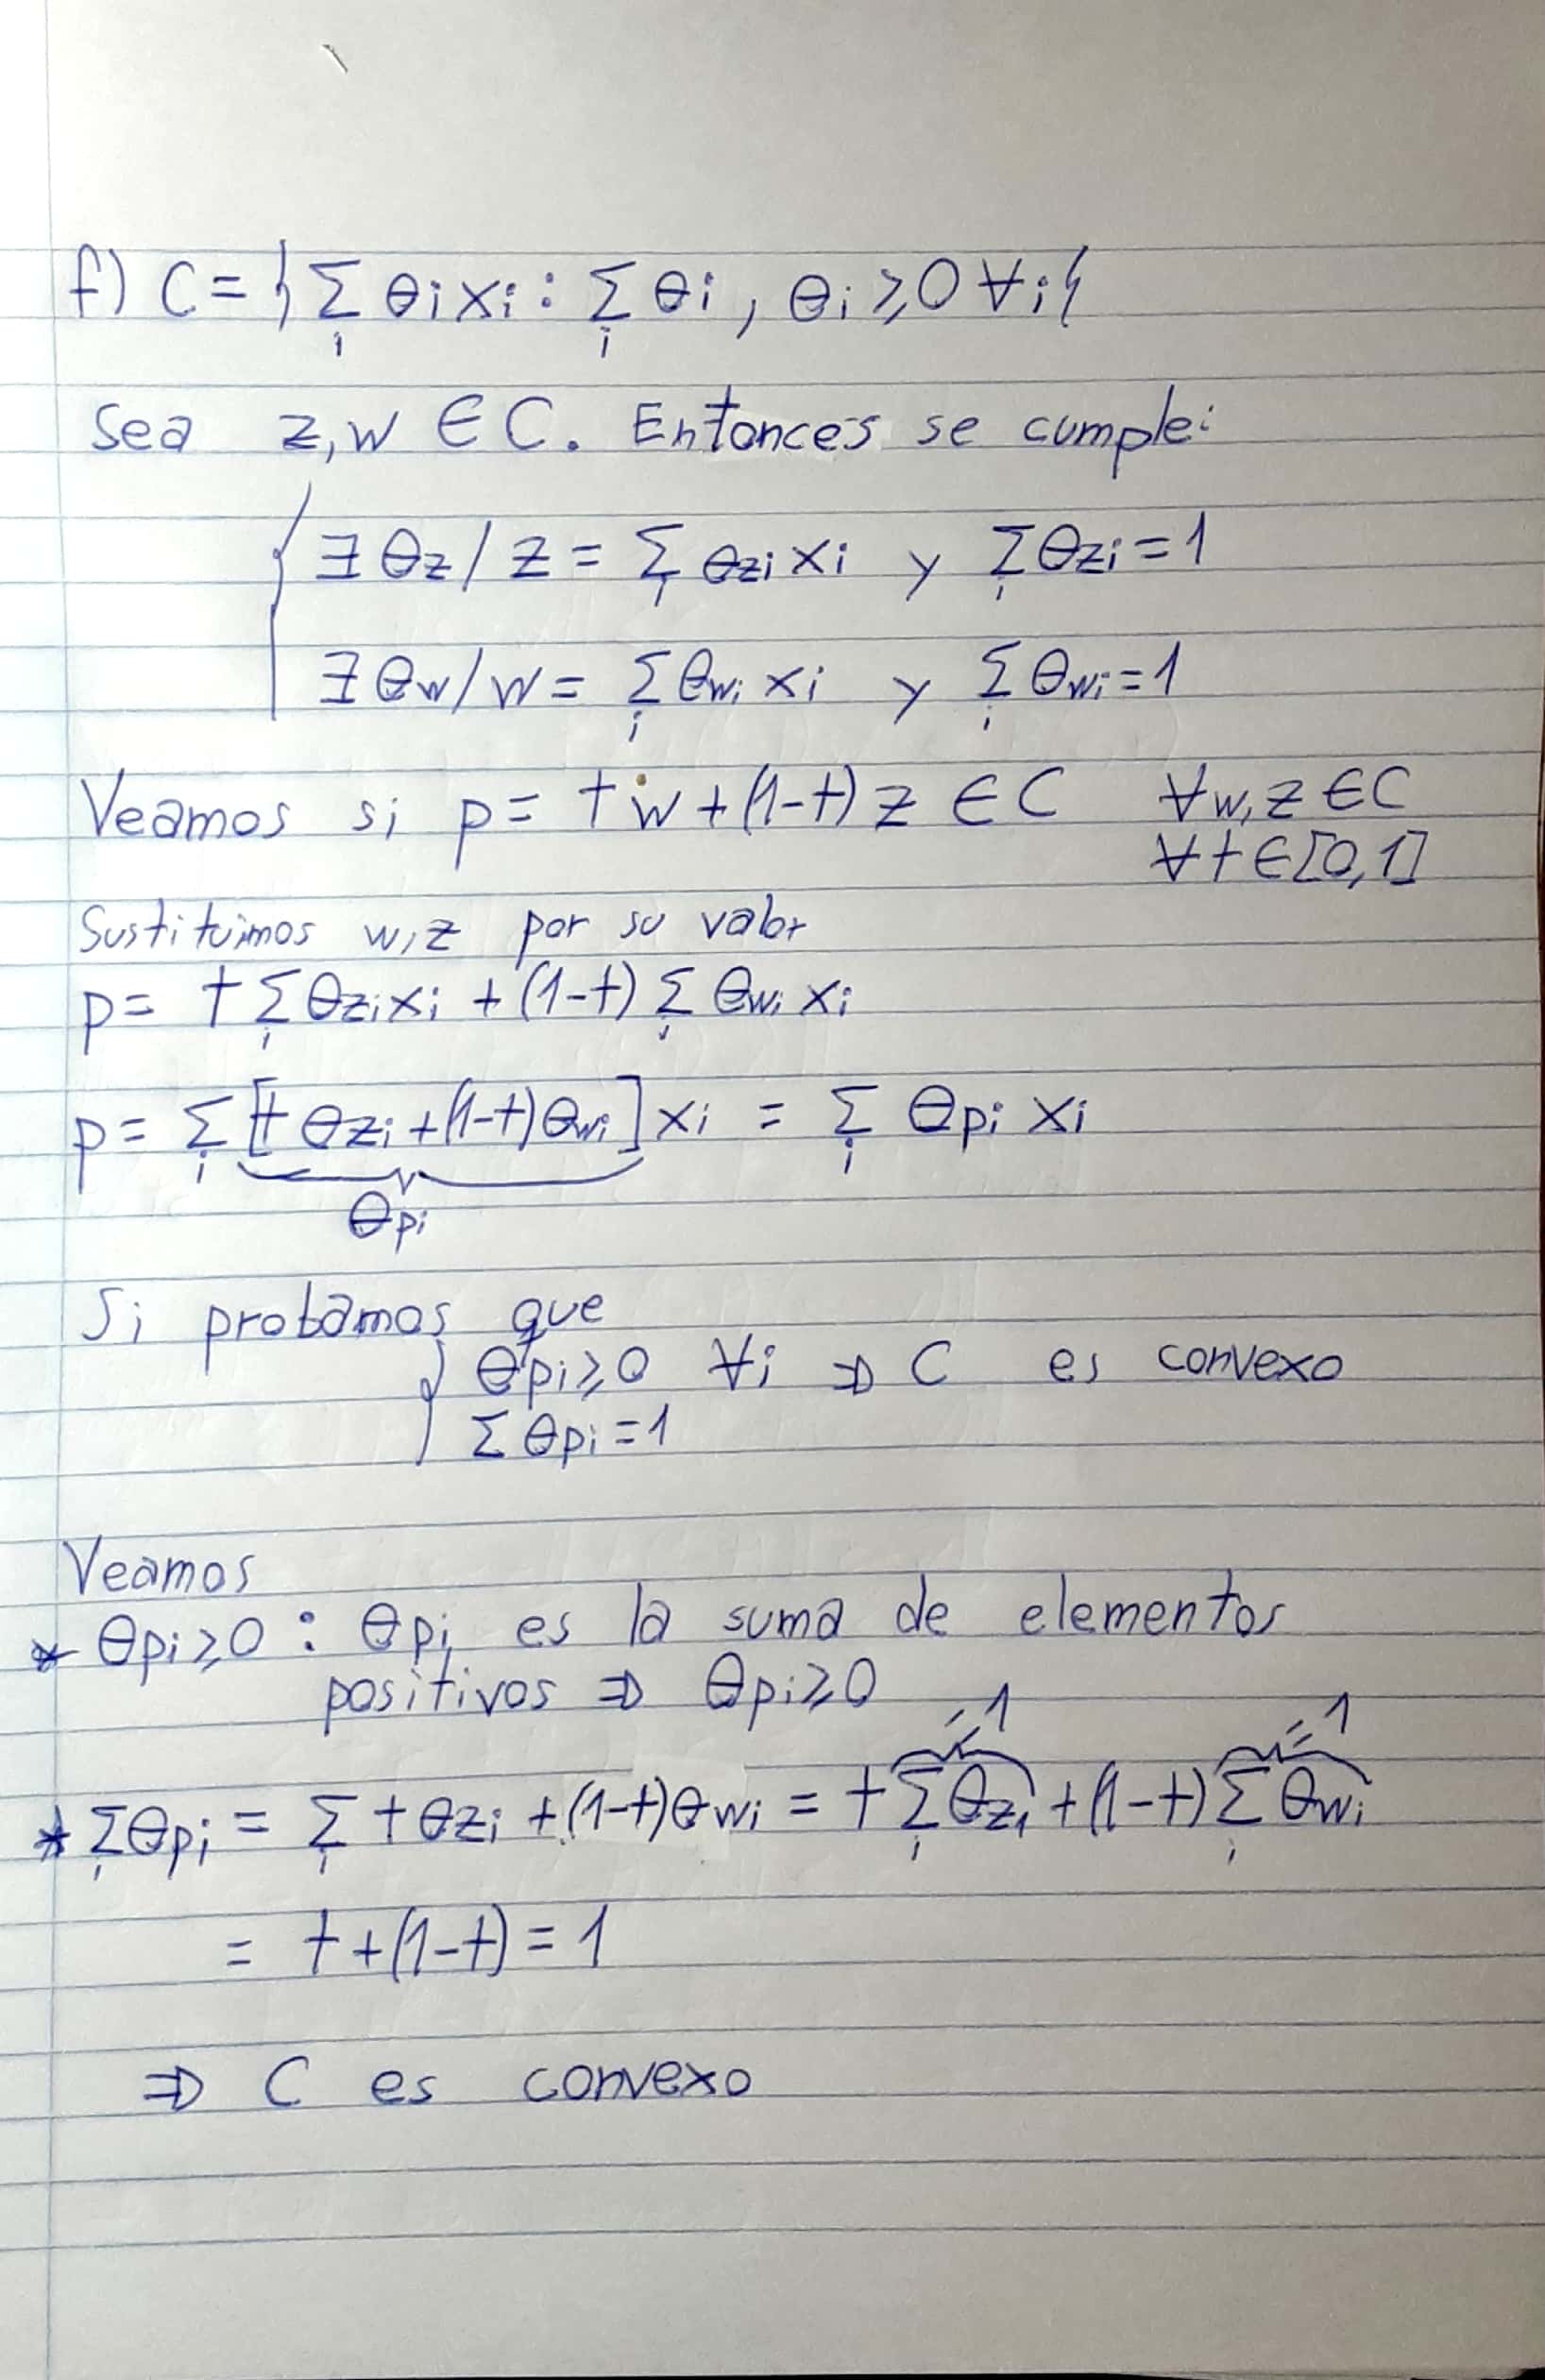 f) C = { Σᵢ θi xi : Σᵢ θi , θi ⩾ 0 ∀i }
Sea z, w ∈ C. Entonces se cumple:
∃ θz / z = Σᵢ θzi xi y Σᵢ θzi = 1
∃ θw / w = Σᵢ θwi xi y Σᵢ θwi = 1
Veamos si p = t w + (1-t) z ∈ C ∀w, z ∈ C
∀t ∈ [0,1]
Sustituimos w, z por su valor
p = t Σᵢ θzi xi + (1-t) Σᵢ θwi xi
p = Σᵢ [t θzi + (1-t) θwi] xi = Σᵢ θpi xi
θpi
Si probamos que
θpi ⩾ 0 ∀i ⇒ C es convexo
Σ θpi = 1
Veamos
* θpi ⩾ 0 : θpi es la suma de elementos
positivos ⇒ θpi ⩾ 0
=1 =1
* Σᵢ θpi = Σᵢ t θzi + (1-t) θwi = t Σᵢ θzi + (1-t) Σᵢ θwi
= t + (1-t) = 1
⇒ C es convexo